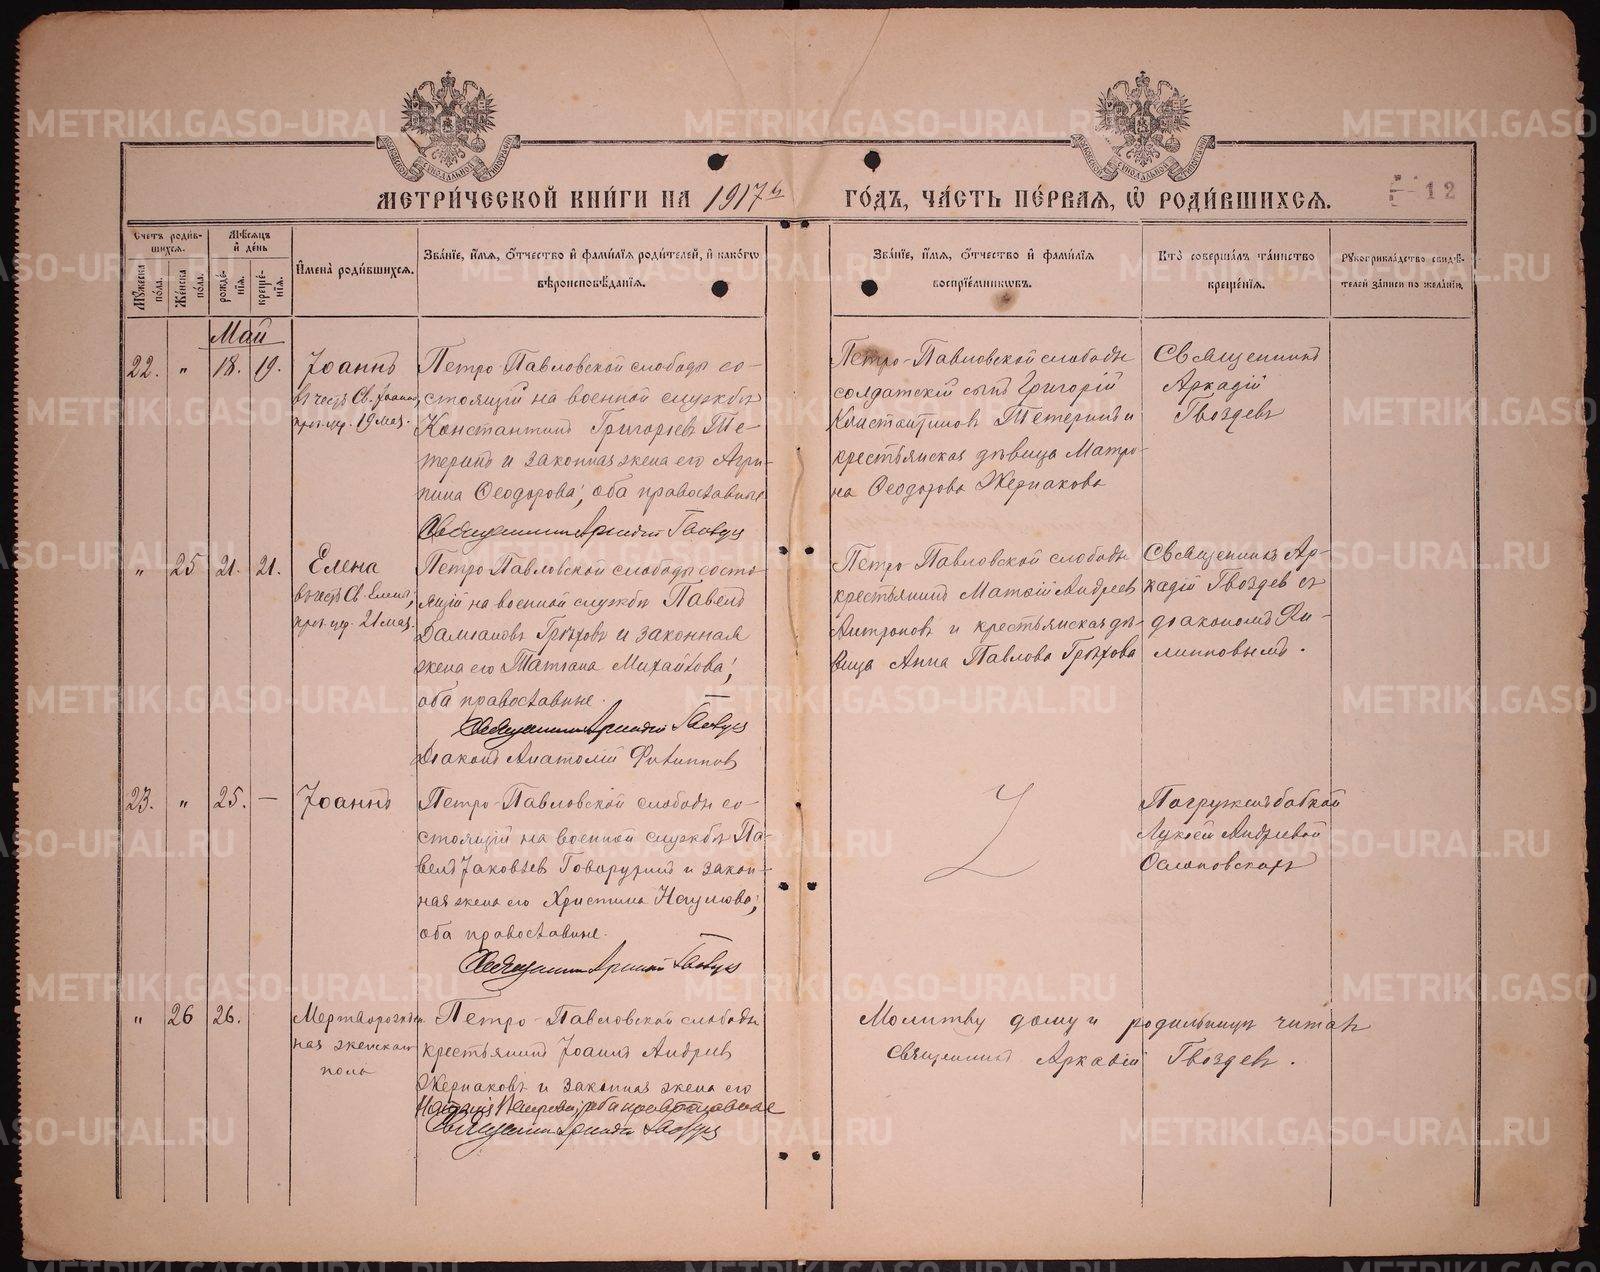 МЕТРИ́ЧЕСКОЙ КНИ́ГИ НА 1917й ГО́ДЪ, ЧА́СТЬ ПЕ́РВАЯ, Ѽ РОДИ́ВШИХСЯ.
12
Сче́тъ роди́в-
шихся.
Мѣ́сяцъ
и҆ де́нь
Му́жеска по́ла.
Же́нска по́ла.
рожде́-
нїя.
креще́-
нїя.
И҆мена̀ роди́вшихся.
Зва́нїе, и҆́мя, ѻ҆́тчество и҆ фами́лїя роди́телей, и҆ како́гѡ
вѣроисповѣ́данїя.
Зва́нїе, и҆́мя, ѻ҆́тчество и҆ фами́лїя
воспрїе́мниковъ.
Кто̀ соверша́лъ та́инство
креще́нїя.
Рꙋкоприкла́дство свидѣ́-
телей за́писи по жела́нїю.
Май
22. " 18. 19.
Іоаннъ
въ честь Св. Іоанна,
19 мая.
Петро-Павловской слободы со-
стоящій на военной службѣ
Константинъ Григорьевъ Те-
теринъ и законная жена его Агри-
пина Ѳеодорова; оба православные
Священникъ Аркадій Гвоздевъ
Петро-Павловской слободы
солдатскій сынъ Григорій
Константиновъ Тетеринъ и
крестьянская дѣвица Матро-
на Ѳеодорова Жернакова
Священникъ
Аркадій
Гвоздевъ
" 25 21. 21.
Елена
въ честь Св. Елены,
21 мая.
Петро-Павловской слободы состо-
ящій на военной службѣ Павелъ
Даміановъ Грѣховъ и законная
жена его Татіана Михайлова;
оба православные.
Священникъ Аркадій Гвоздевъ
Діаконъ Анатолій Филипповъ
Петро-Павловской слободы
крестьянинъ Матѳій Андреевъ
Антроповъ и крестьянская дѣ-
вица Анна Павлова Грѣхова
Священникъ Ар-
кадій Гвоздев съ
діакономъ Фи-
липповымъ.
23. " 25. —
Іоаннъ
Петро-Павловской слободы со-
стоящій на военной службѣ Па-
велъ Іаковлев и закон-
ная жена его Христина Наумова;
оба православные.
Священникъ Аркадій Гвоздевъ
Погруженъ бабкой
Лукіей Андреевой
" 26 26.
Мертворожден-
ная женскаго
пола
Петро-Павловской слободы
крестьянинъ Іоаннъ Андреев
Жернаковъ и законная жена его
Наталія Петрова; оба православные
Священникъ Аркадій Гвоздевъ
Молитву дому и родильницѣ читалъ
священникъ Аркадій Гвоздевъ.
METRIKI.GASO-URAL.RU